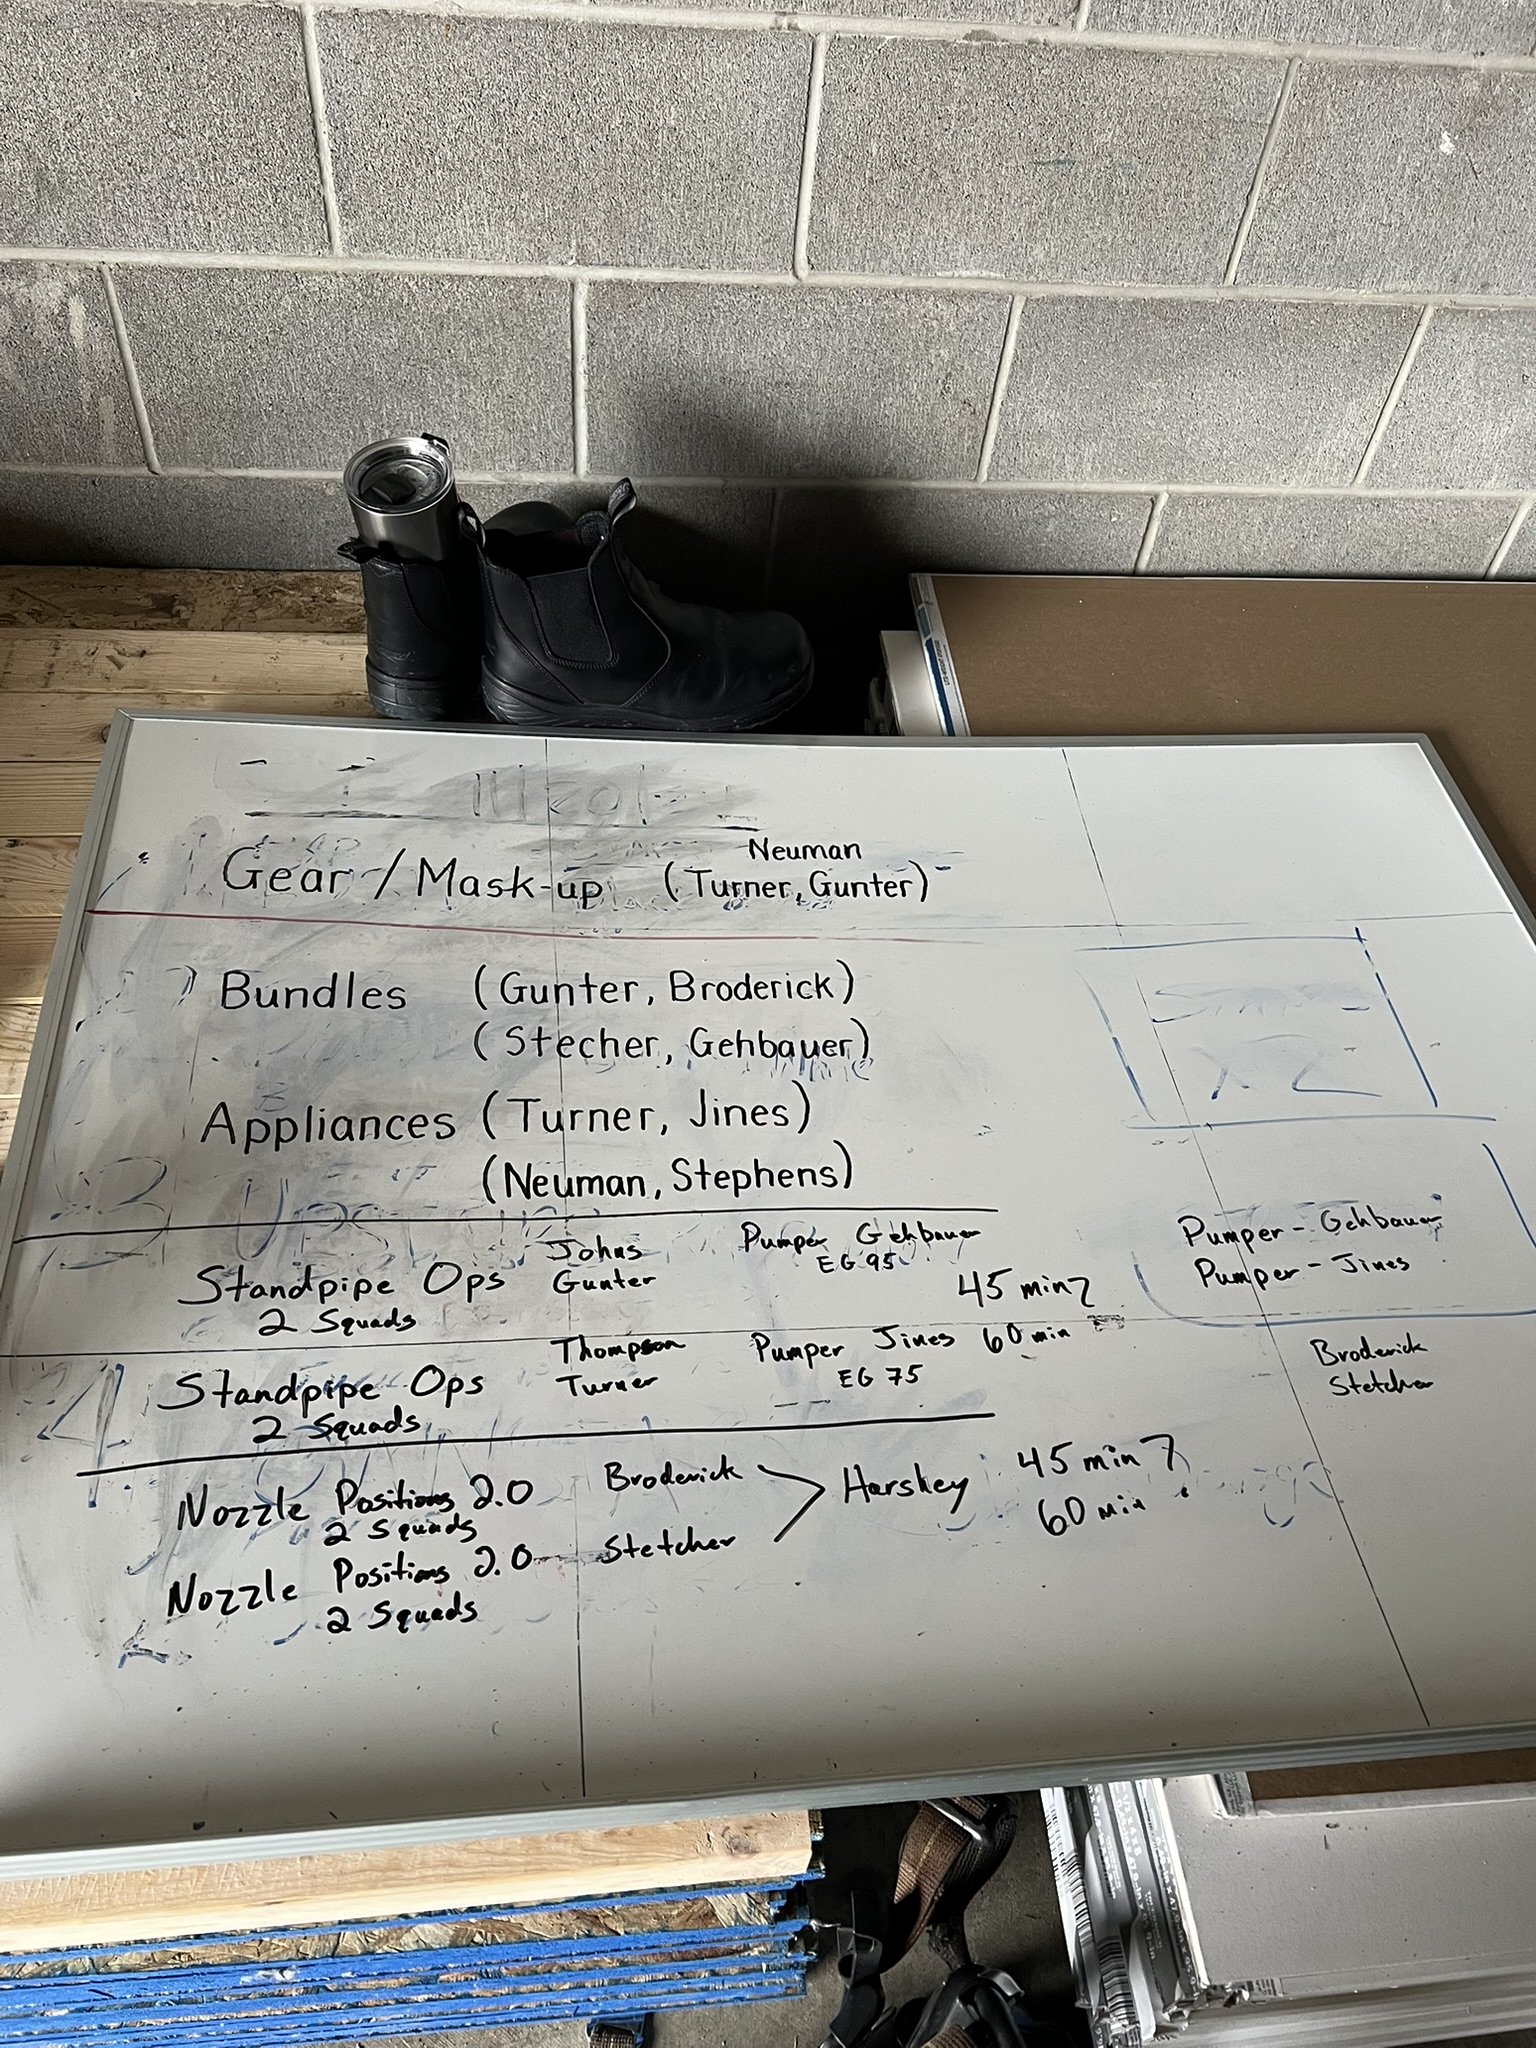 Neuman
Gear / Mask-up (Turner, Gunter)
Bundles (Gunter, Broderick)
(Stecher, Gehbauer)
Appliances (Turner, Jines)
(Neuman, Stephens)
Johns Pumper Gehbauer
EG 95
Standpipe Ops Gunter 45 min
2 Squads
Pumper - Gehbauer
Pumper - Jines
Thompson Pumper Jines 60 min
Standpipe Ops Turner EG 75
2 Squads
Broderick
Stetcher
Nozzle Positions 2.0 Broderick Harshey 45 min
2 Squads 60 min
Nozzle Positions 2.0 Stetcher
2 Squads